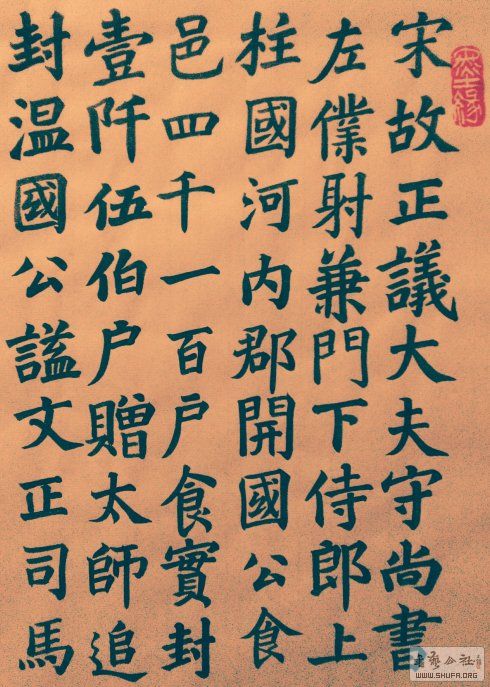 宋故正議大夫守尚書
左僕射兼門下侍郎上
柱國河內郡開國公食
邑四千一百户食實封
壹阡伍伯户贈太師追
封温國公謚文正司馬
书艺公社
WWW.SHUFA.ORG